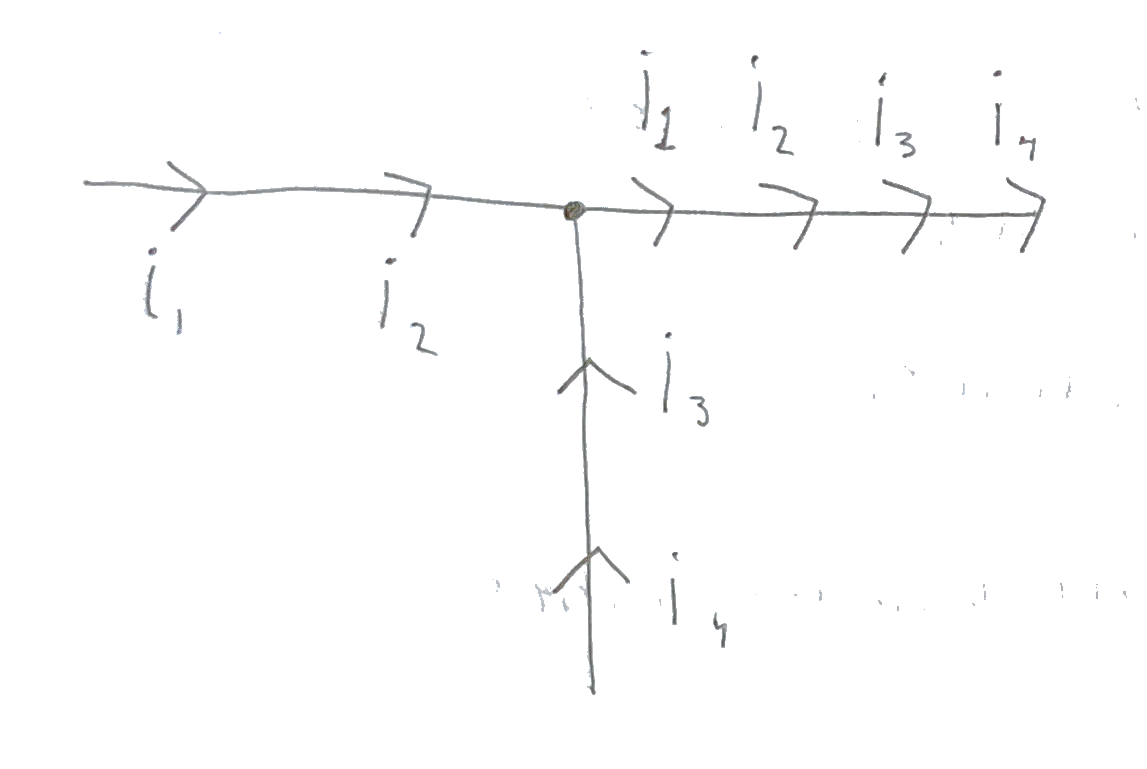 i1 i2 i3 i4
i1 i2
i3
i4